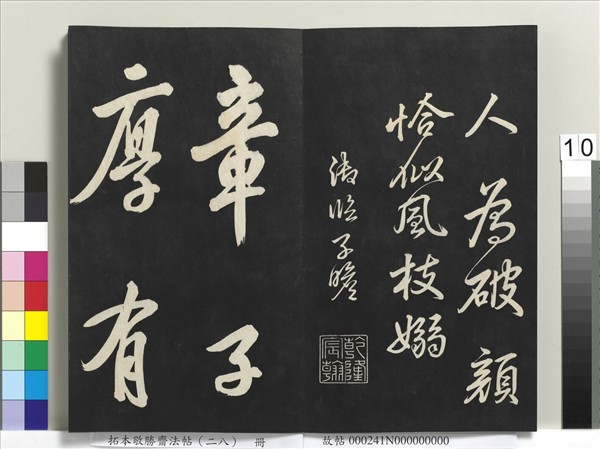 人為破顏
恰似風枝嫋
御臨子瞻
乾隆
宸翰
章子
厚有
10
拓本敬勝齋法帖(二八) 冊 故帖 000241N000000000